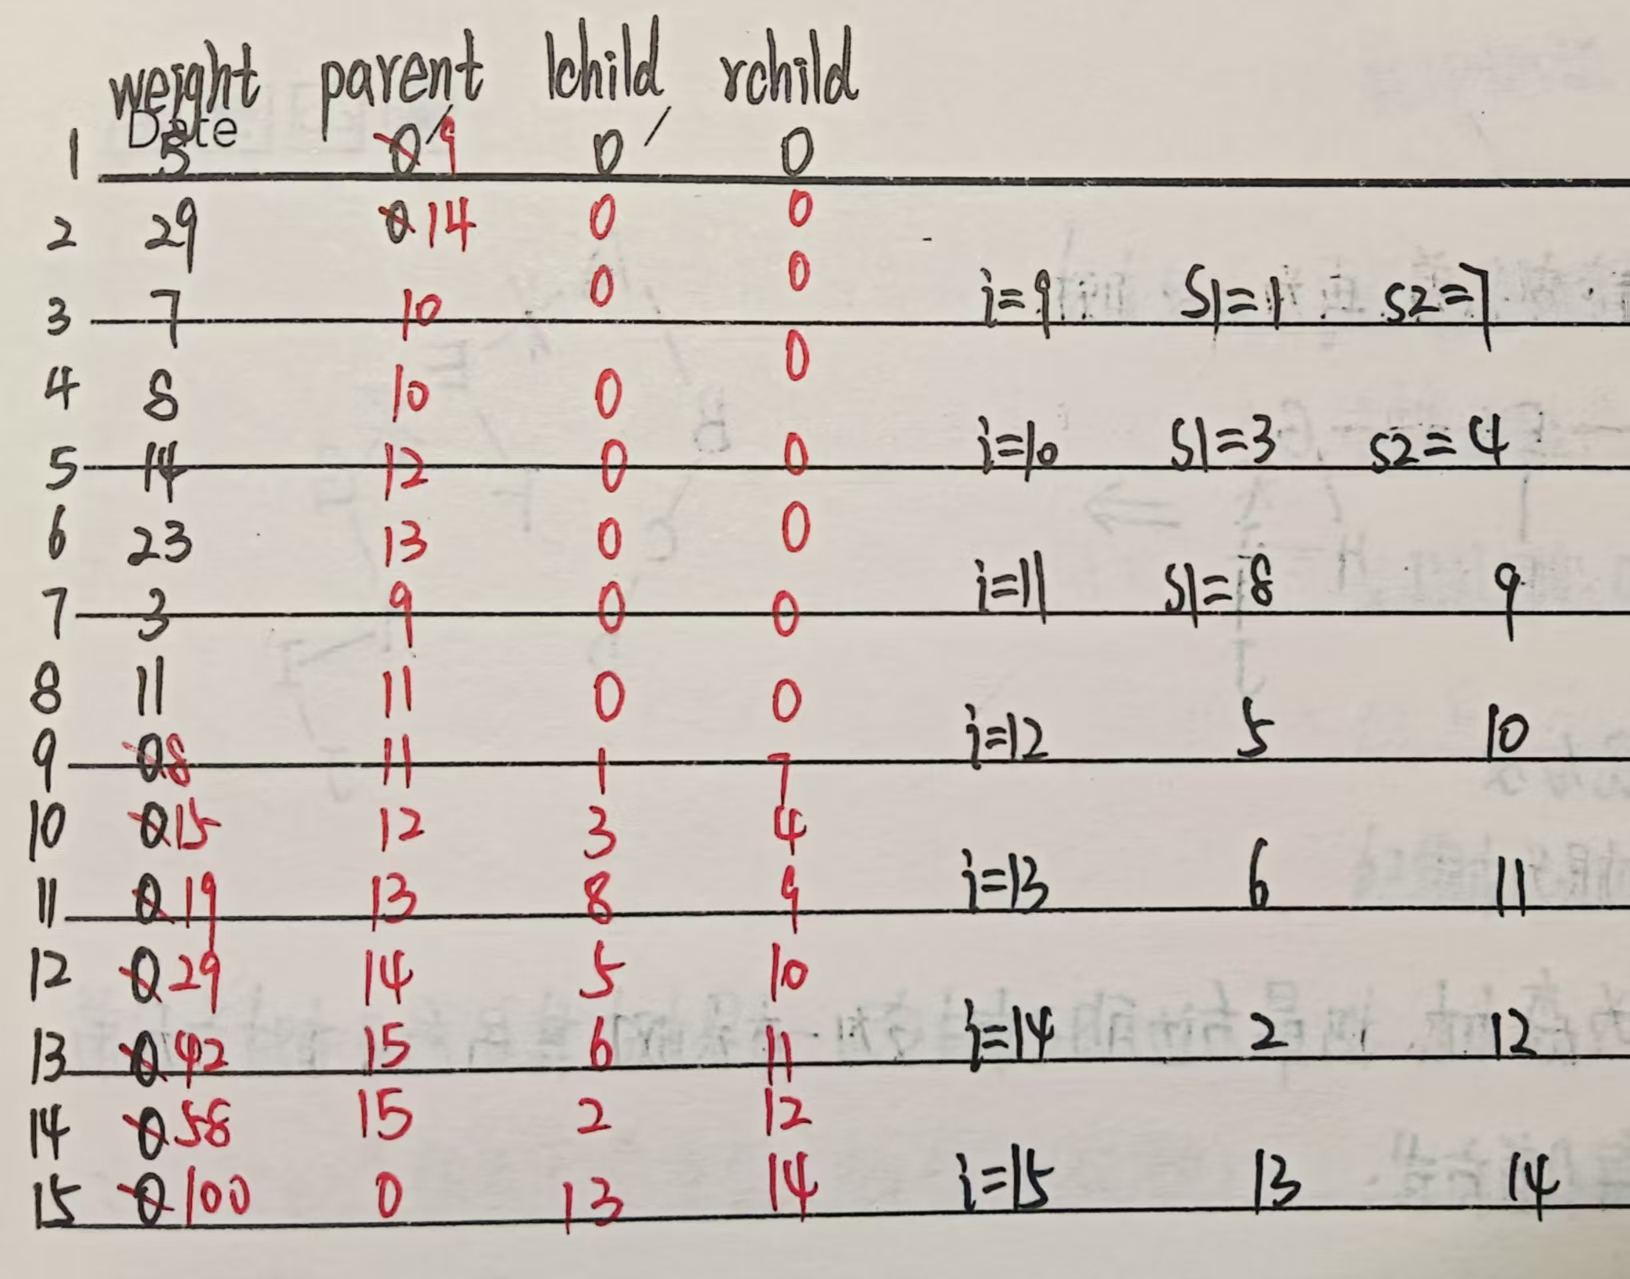 weight parent lchild rchild
Date
1 5 0 9 0 0
2 29 0 14 0 0
3 7 10 0 0 i=9 S1=1 S2=7
4 8 10 0 0
5 14 12 0 0 i=10 S1=3 S2=4
6 23 13 0 0
7 3 9 0 0 i=11 S1=8 9
8 11 11 0 0
9 0 8 11 1 7 i=12 5 10
10 0 15 12 3 4
11 0 19 13 8 9 i=13 6 11
12 0 29 14 5 10
13 0 42 15 6 11 i=14 2 12
14 0 58 15 2 12
15 0 100 0 13 14 i=15 13 14